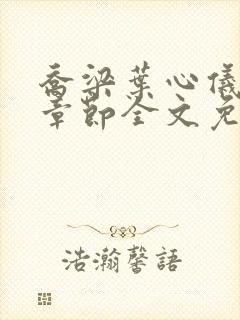 喬梁葉心儀
章節全文免
浩瀚馨語